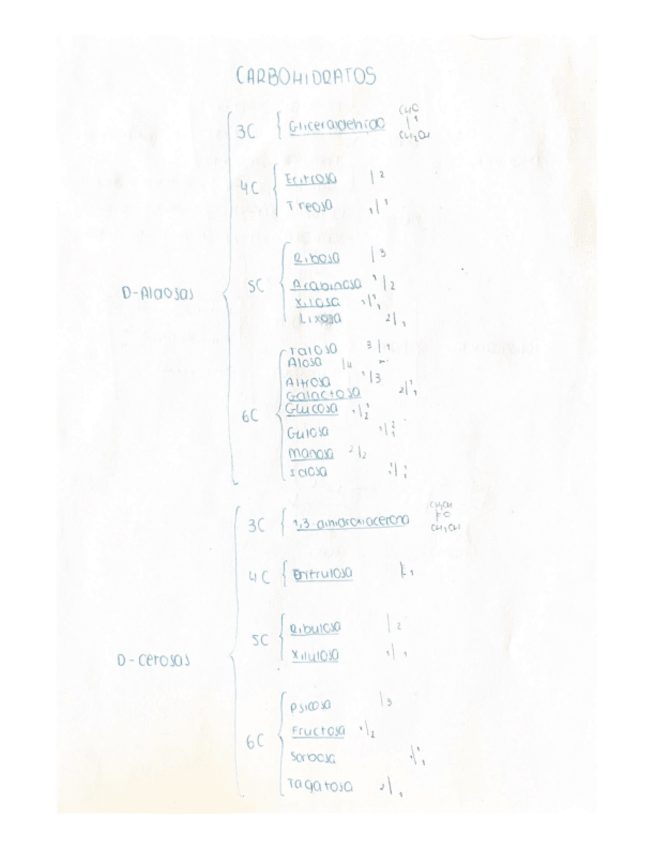 CARBOHIDRATOS
D-Aldosas
3C
Gliceraldehido
CHO
CH2OH
4C
Eritrosa | 2
Treosa 1 | 1
5C
Ribosa | 3
Arabinosa 1 | 2
Xilosa
Lixosa 2 | 1
6C
Talosa 3 | 1
Alosa | 4
Altrosa 1 | 3
Galactosa
Glucosa
Gulosa
Manosa 2 | 2
Idosa
D-Cetosas
3C
1,3 dihidroxiacetona
CH2OH
C
CH2OH
4C
Eritrulosa | 1
5C
Ribulosa | 2
Xilulosa 1 | 1
6C
Psicosa | 3
Fructosa 1 | 2
Sorbosa
Tagatosa 2 | 1